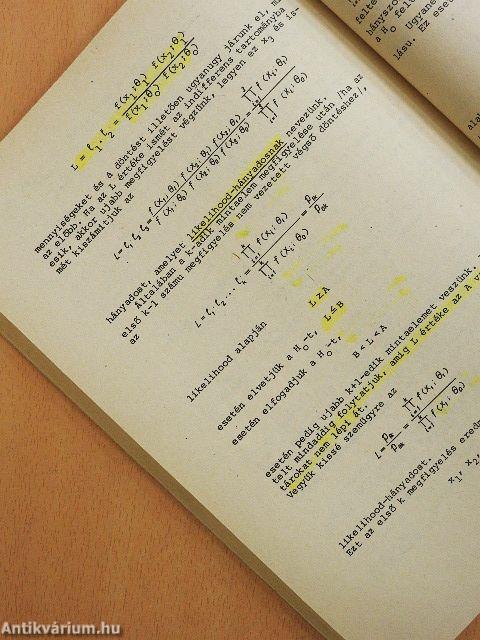 L = ℓ₁·ℓ₂ = f(x₁;θ₁) f(x₂;θ₁) / f(x₁;θ₀) f(x₂;θ₀)
mennyiségeket és A döntést illetően ugyanúgy járunk el, mi
az előbb. Ha az L értéke ismét az indifferens tartományba
esik, akkor ujabb megfigyelést végzünk, legyen ez x₃ és is-
mét kiszámitjuk az
L = ℓ₁ ℓ₂ ℓ₃ = f(x₁;θ₁) f(x₂;θ₁) f(x₃;θ₁) / f(x₁;θ₀) f(x₂;θ₀) f(x₃;θ₀) = ∏ᵢ₌₁³ f(xᵢ;θ₁) / ∏ᵢ₌₁³ f(xᵢ;θ₀)
hányadost, amelyet likelihood-hányadosnak nevezünk.
Általában a k-adik mintaelem megfigyelése után /ha az
első k-1 számu megfigyelés nem vezetett végső döntéshez/,
az
L = ℓ₁·ℓ₂ ... ℓₖ = ∏ᵢ₌₁ᵏ f(xᵢ;θ₁) / ∏ᵢ₌₁ᵏ f(xᵢ;θ₀) = p₁ₖ / p₀ₖ
likelihood alapján
L ≥ A
esetén elvetjük a H₀-t,
L ≤ B
esetén elfogadjuk a H₀-t,
B < L < A
esetén pedig ujabb k+1-edik mintaelemet veszünk.
telt mindaddig folytatjuk, amig L értéke az A v
tárokat nem lépi át.
Vegyük kissé szemügyre az
L = p₁ₖ / p₀ₖ = ∏ᵢ₌₁ᵏ f(xᵢ;θ₁) / ∏ᵢ₌₁ᵏ f(xᵢ;θ₀)
likelihood-hányadost.
Ezt az első k megfigyelés eredm
x₁, x₂,
felté
hányszo
a H₀ felü
Ugyane
lásu. Ez eset
Antikvárium.hu